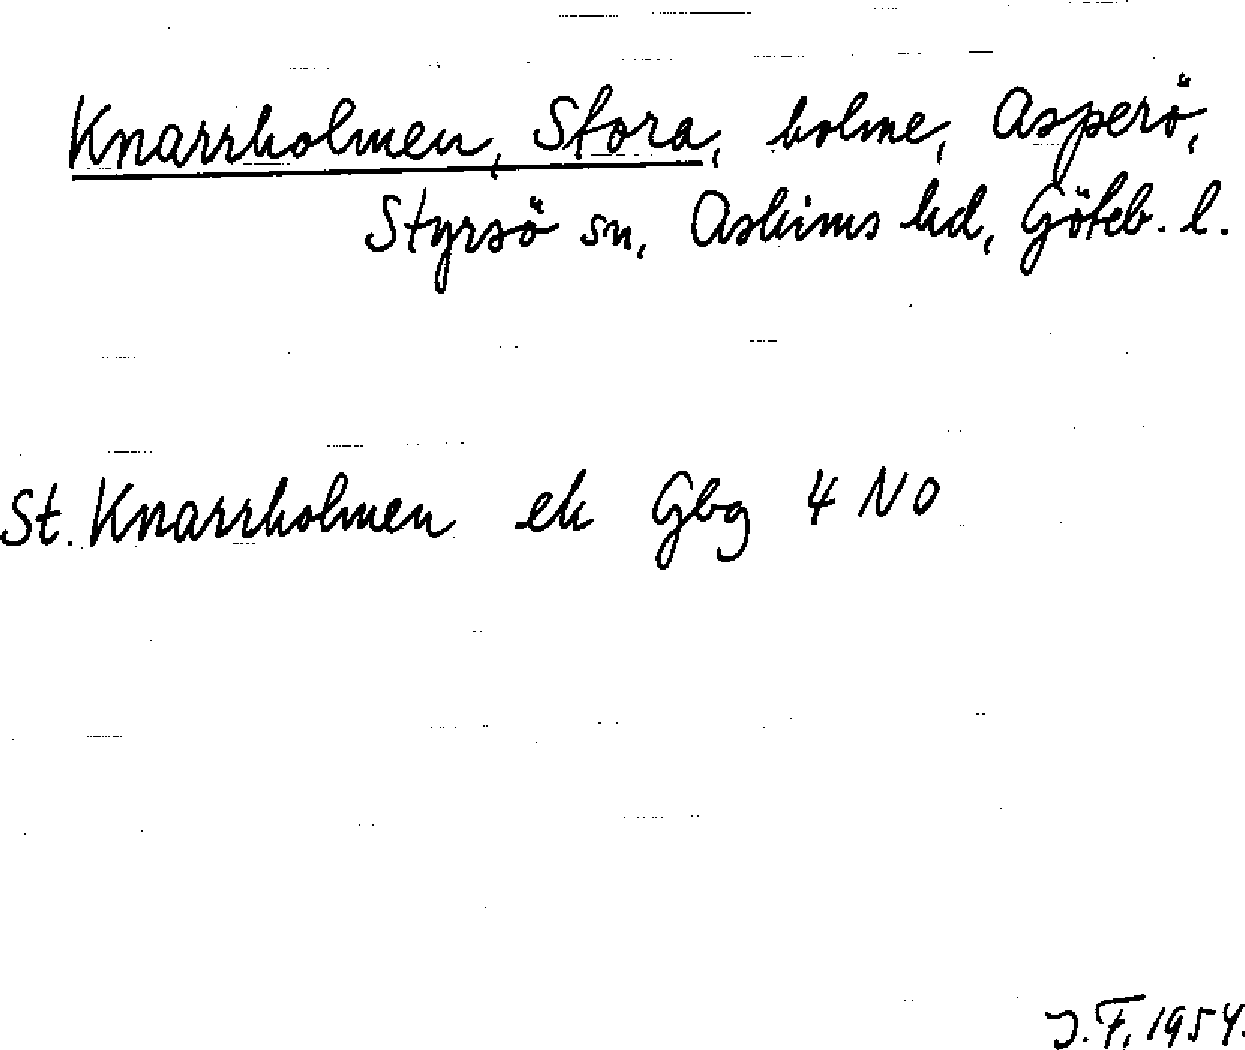 Knarrholmen, Stora, holme, Asperö,
Styrsö sn, Askims hd, Göteb. l.
St. Knarrholmen ek Gbg 4 NO
J.F. 1954.